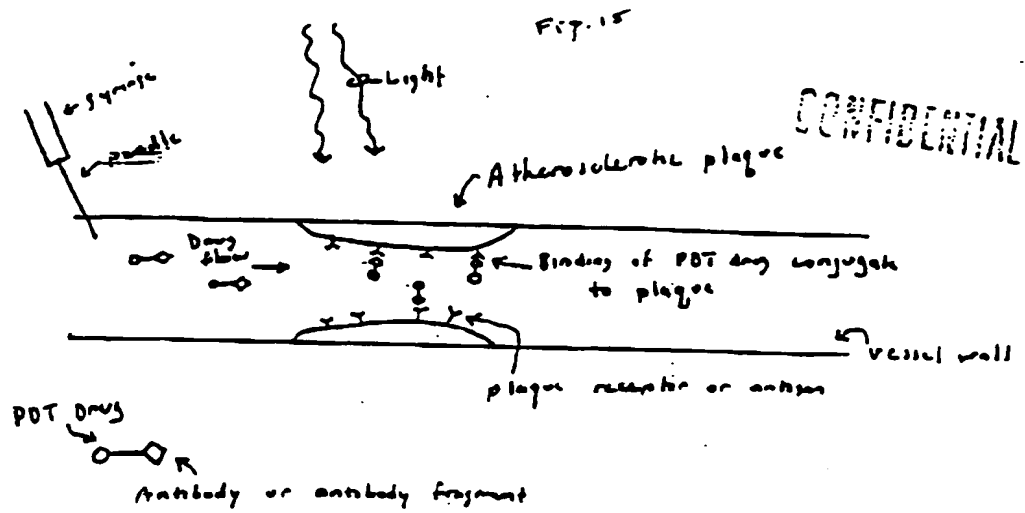 Fig. 15
Light
syringe
needle
CONFIDENTIAL
Atherosclerotic plaque
Drug
flow
Binding of PDT drug conjugate
to plaque
vessel wall
plaque receptor or antigen
PDT Drug
Antibody or antibody fragment